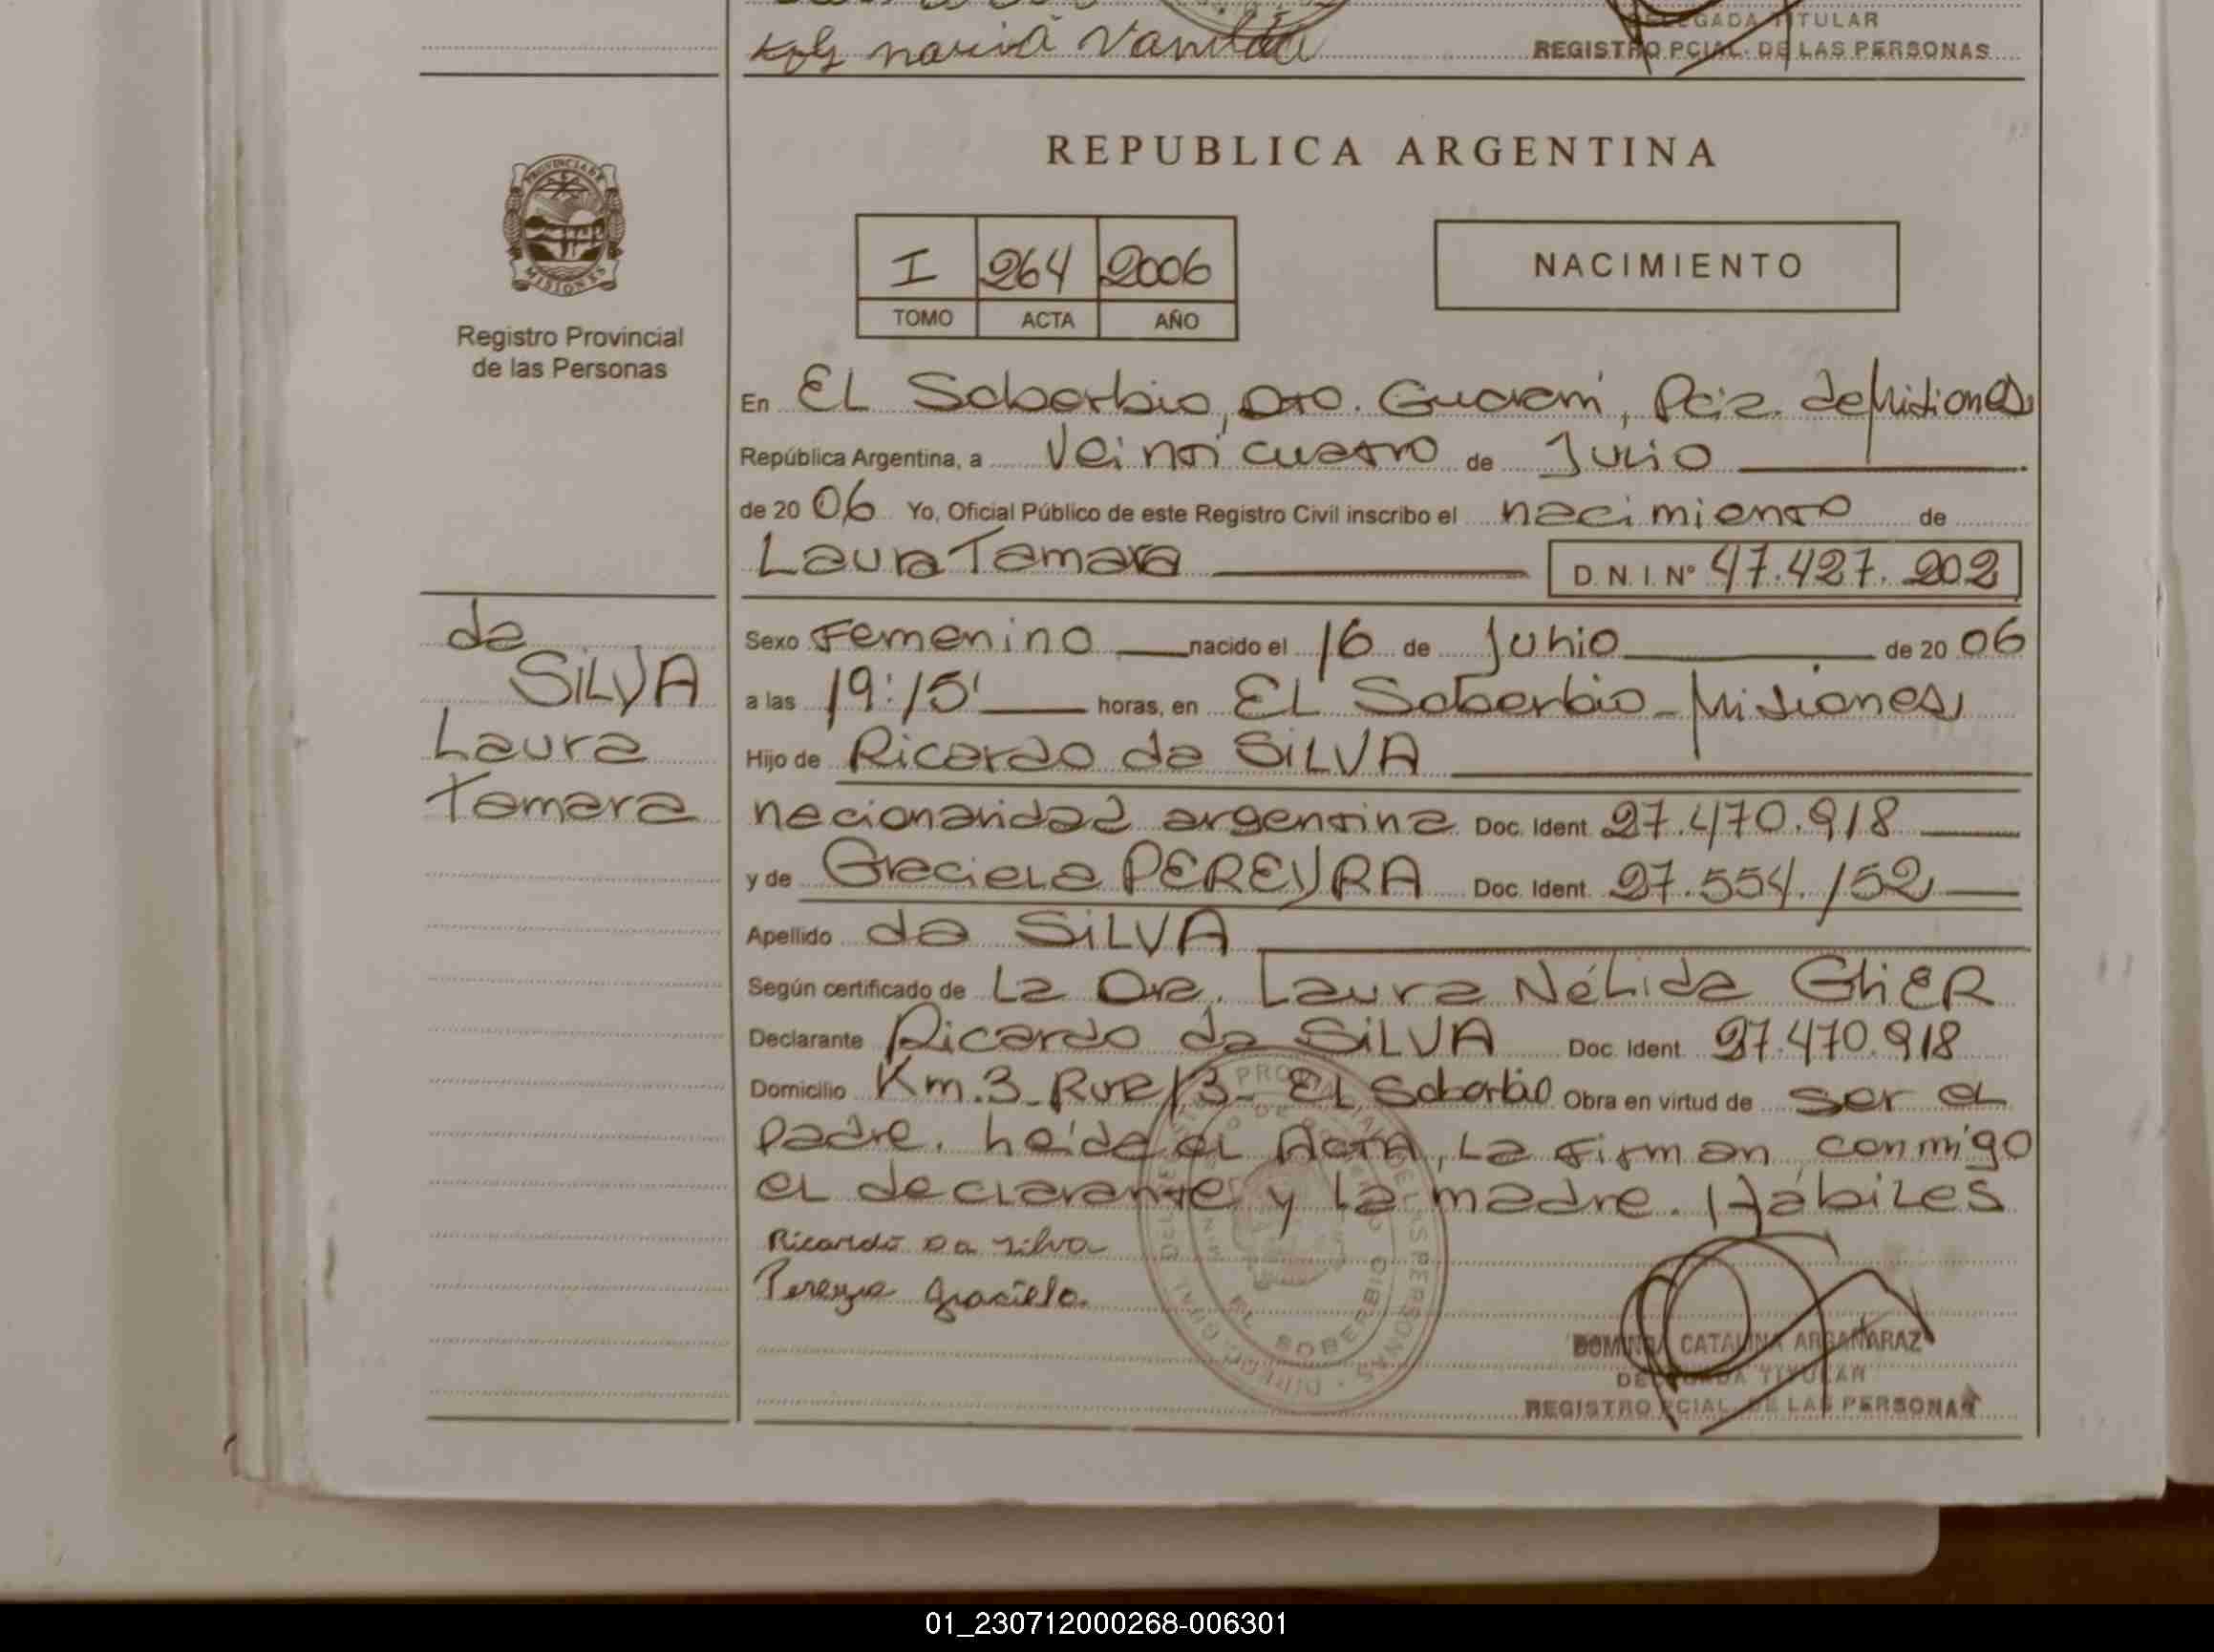 María Vanilda
DELEGADA TITULAR
REGISTRO PCIAL. DE LAS PERSONAS
PROVINCIA DE
MISIONES
Registro Provincial
de las Personas
REPUBLICA ARGENTINA
I 264 2006
TOMO ACTA AÑO
NACIMIENTO
En EL Soberbio, Dto. Guarani, Pcia. de Misiones
República Argentina, a Veinticuatro de Julio
de 2006 Yo, Oficial Público de este Registro Civil inscribo el nacimiento de
Laura Tamara D. N. I. Nº 47.427.202
da
SILVA
Laura
Tamara
Sexo Femenino nacido el 16 de Junio de 2006
a las 19:15' horas, en EL Soberbio - Misiones
Hijo de Ricardo da SILVA
nacionalidad argentina Doc. Ident 27.470.918
y de Graciela PEREYRA Doc. Ident. 27.554.152
Apellido da SILVA
Según certificado de La Dra. Laura Nélida GHIER
Declarante Ricardo da SILVA Doc. Ident. 27.470.918
Domicilio Km.3 - Ruta 13 - EL Soberbio Obra en virtud de ser el
padre. Leída el Acta, La firman conmigo
el declarante y la madre. Hábiles
Ricardo Da Silva
Pereyra Graciela.
EL SOBERBIO
DOMINGA CATALINA ARGAÑARAZ
DELEGADA TITULAR
REGISTRO PCIAL. DE LAS PERSONAS
01_230712000268-006301